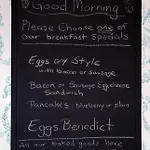 Good Morning
Please Choose one of
our breakfast specials
Eggs any Style
with bacon or Sausage
Bacon or Sausage Egg cheese
Sandwich
Pancakes: blueberry or plain
Eggs Benedict
All our baked goods here